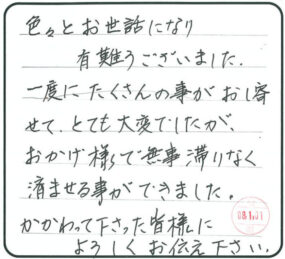 色々とお世話になり
有難うございました.
一度にたくさんの事がおし寄
せて、とても大変でしたが、
おかげ様で無事滞りなく
済ませる事ができました。
かかわって下さった皆様に
よろしくお伝え下さい.
08.1.01